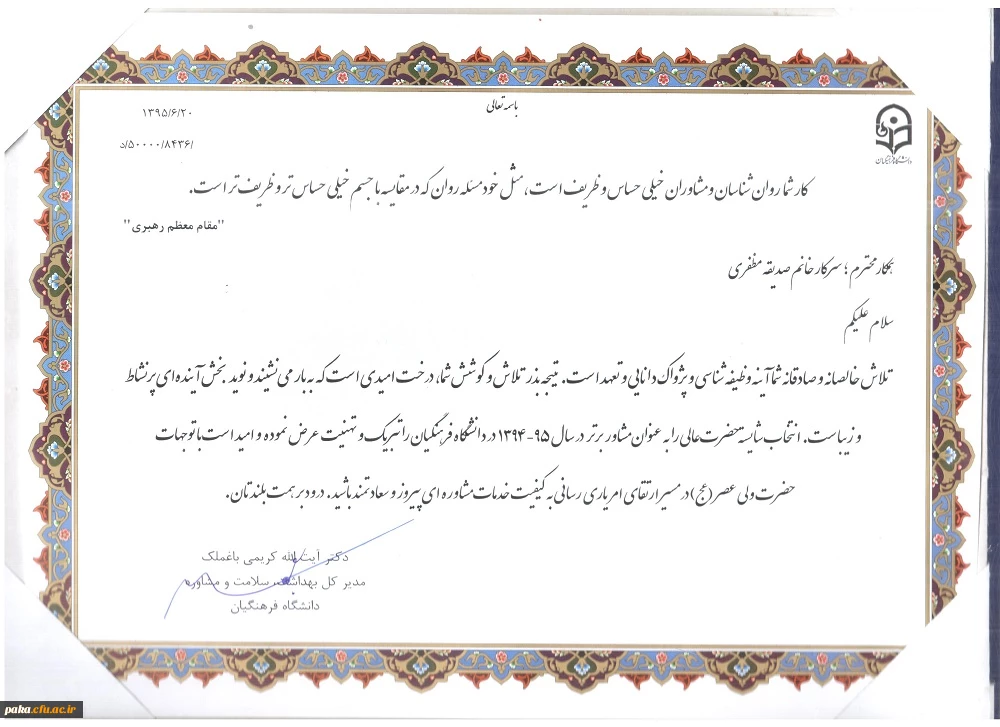 باسمه تعالی
۱۳۹۵/۶/۲۰
۵۰۰۰۰/۸۴۳۶/د/
دانشگاه فرهنگیان
کار شما روان شناسان و مشاوران خیلی حساس و ظریف است، مثل خود مسئله روان که در مقایسه با جسم خیلی حساس تر و ظریف تر است.
"مقام معظم رهبری"
همکار محترم ؛ سرکار خانم صدیقه مظفری
سلام علیکم
تلاش خالصانه و صادقانه شما آینه وظیفه شناسی و پژواک دانایی و تعهد است. نتیجه بذر تلاش و کوشش شما، درخت امیدی است که به بار می نشیند و نوید بخش آینده ای پر نشاط
و زیباست. انتخاب شایسته حضرت عالی را به عنوان مشاور برتر در سال ۹۵-۱۳۹۴ در دانشگاه فرهنگیان را تبریک و تهنیت عرض نموده و امید است با توجهات
حضرت ولی عصر (عج) در مسیر ارتقای امر یاری رسانی به کیفیت خدمات مشاوره ای پیروز و سعادتمند باشید. درود بر همت بلندتان.
دکتر آیت الله کریمی باغملک
مدیر کل بهداشت، سلامت و مشاوره
دانشگاه فرهنگیان
paka.cfu.ac.ir